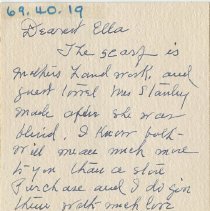 69.40.19
Dearest Ella
The scarf is
mothers hand work, and
guest towel Mrs Stanley
made after she was
blind. I know both
will mean much more
to you than a store
purchase and I do give
them with much love